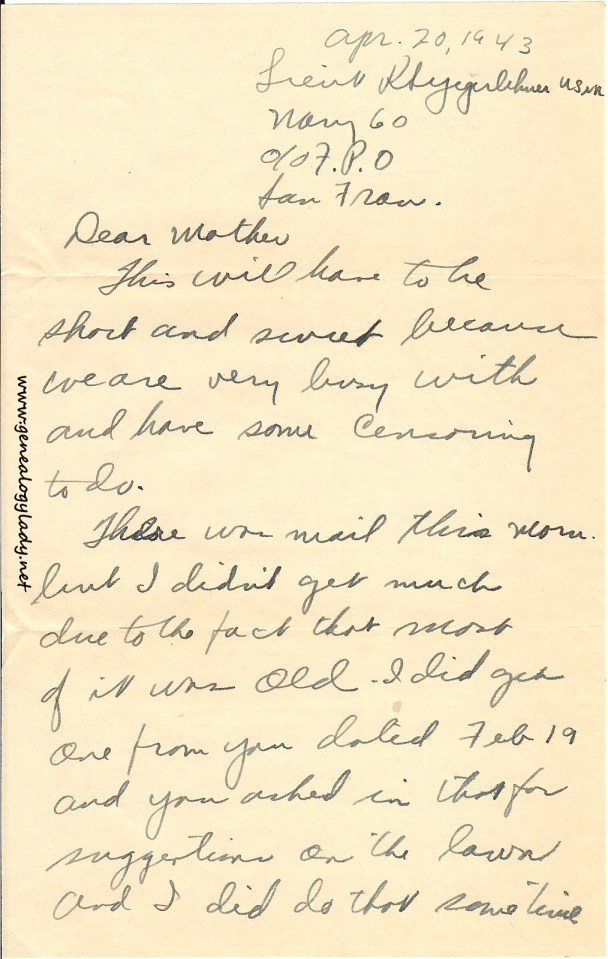 Apr. 20, 1943
Lieut K H Yegerlehner USNR
Navy 60
c/o F.P.O
San Fran.
Dear Mother
This will have to be
short and sweet because
we are very busy with
and have some Censoring
to do.
There was mail this morn.
but I didn't get much
due to the fact that most
of it was old. I did get
one from you dated Feb 19
and you asked in that for
suggestions on the lawn
and I did do that sometime
www.genealogylady.net